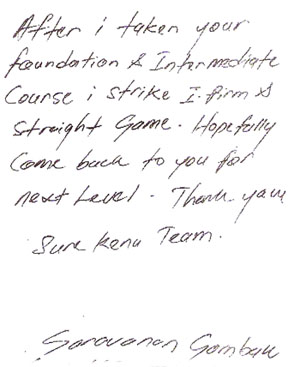 After i taken your
foundation & Intermediate
Course i strike I.firm &
straight Game. Hopefully
Come back to you for
next Level. Thank you
Sure kena Team.
Saravanan Gombak